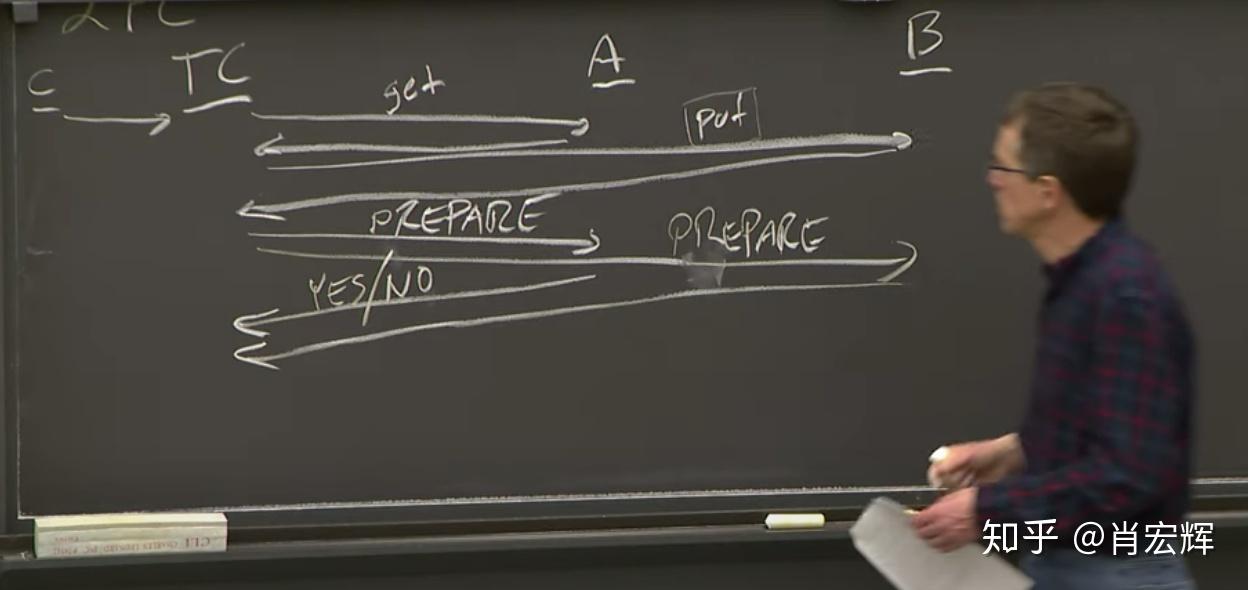 2PC
C
TC
A
B
get
put
PREPARE
PREPARE
YES/NO
知乎 @肖宏辉